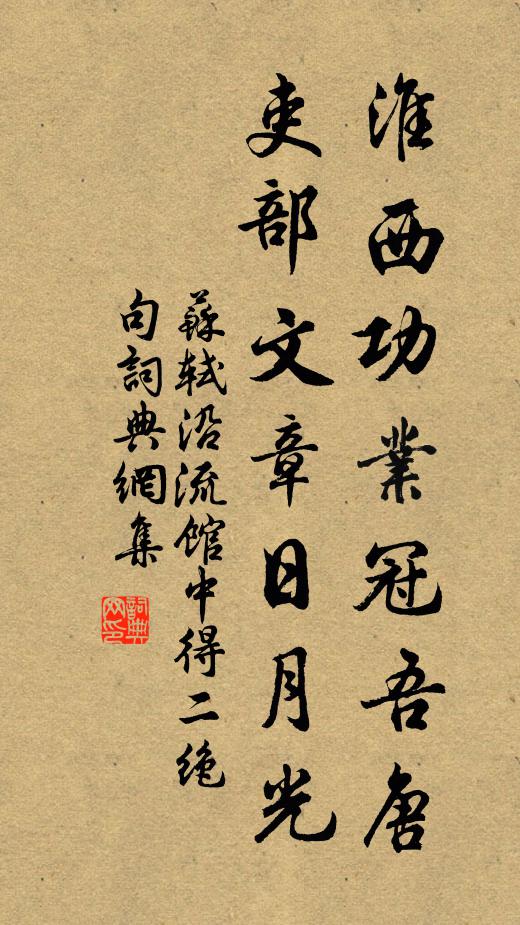 淮西功業冠吾唐
吏部文章日月光
蘇軾沿流館中得二绝
句詞典網集
詞典
网印